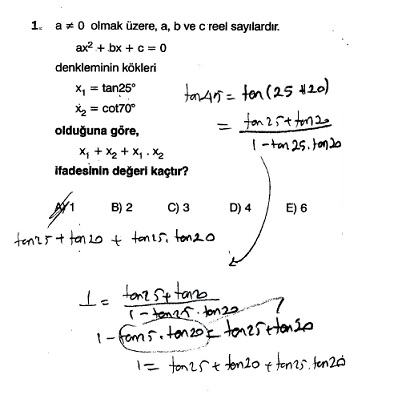 1. a ≠ 0 olmak üzere, a, b ve c reel sayılardır.
ax² + bx + c = 0
denkleminin kökleri
x₁ = tan25°
x₂ = cot70°
olduğuna göre,
x₁ + x₂ + x₁ . x₂
ifadesinin değeri kaçtır?
A) 1 B) 2 C) 3 D) 4 E) 6
tan45 = tan(25+20)
= tan25+tan20 / 1-tan25.tan20
tan25 + tan20 + tan25.tan20
1 = tan25+tan20 / 1-tan25.tan20
1 - tan25.tan20 = tan25+tan20
1 = tan25 + tan20 + tan25.tan20